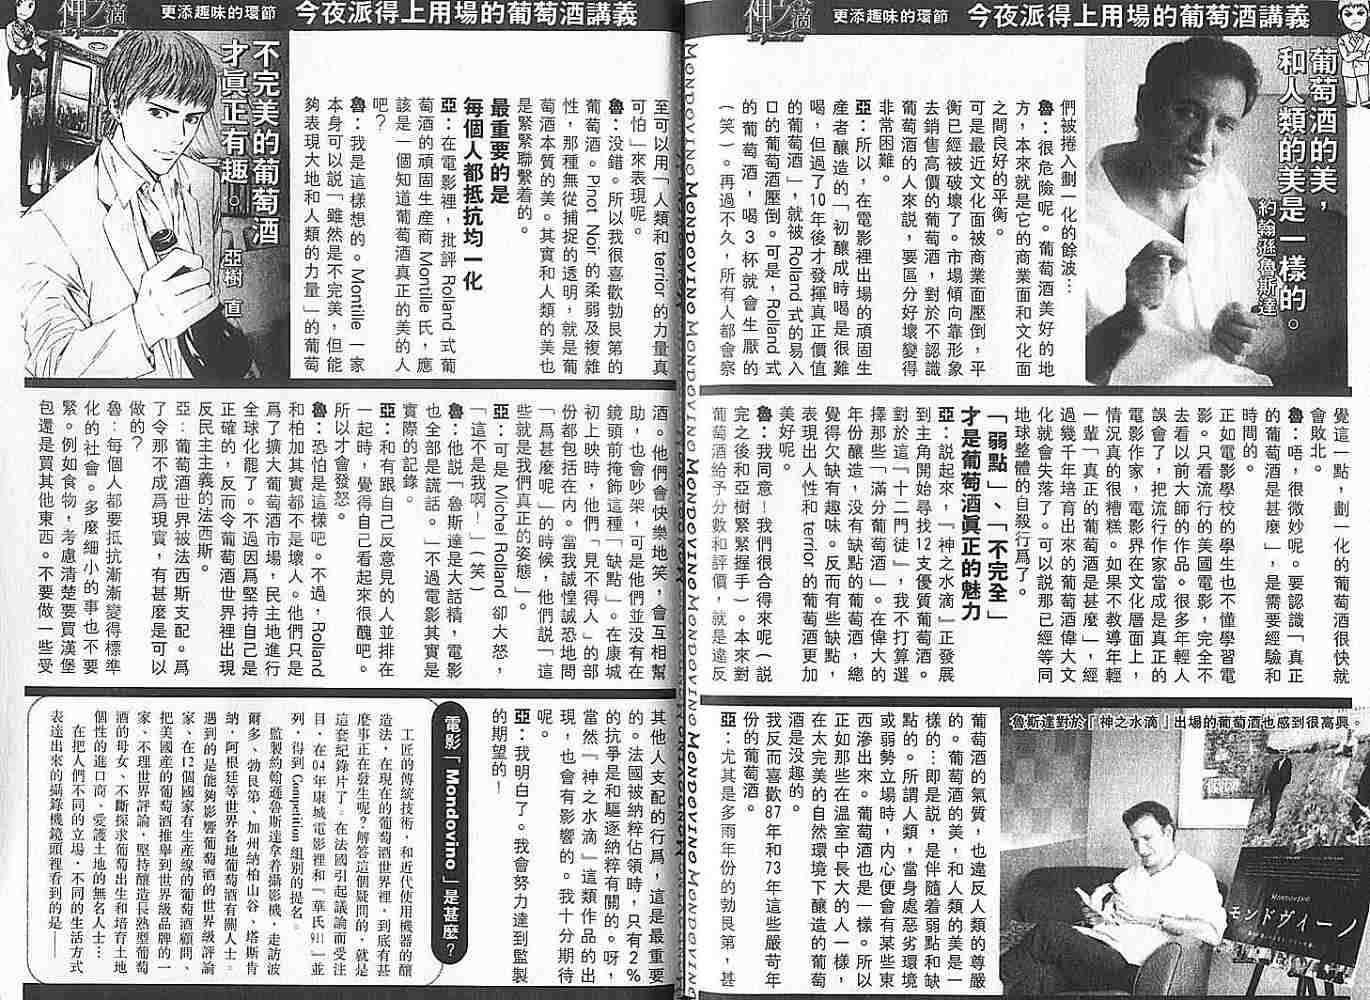 更添趣味的環節 今夜派得上用場的葡萄酒講義
葡萄酒的美，
和人類的美是一樣的。
約翰遜魯斯達
們被捲入劃一化的餘波…
魯：很危險呢。葡萄酒美好的地
方，本來就是它的商業面和文化面
之間良好的平衡。
可是最近文化面被商業面壓倒，平
衡已經被破壞了。市場傾向靠形象
去銷售高價的葡萄酒，對於不認識
葡萄酒的人來說，要區分好壞變得
非常困難。
亞：所以，在電影裡出場的頑固生
產者釀造的「初釀成時喝是很難
喝，但過了10年後才發揮真正價值
的葡萄酒」，就被Rolland式的易入
口的葡萄酒壓倒。可是，Rolland式
的葡萄酒，喝3杯就會生厭的
（笑）。再過不久，所有人都會察
覺這一點，劃一化的葡萄酒很快就
會敗北。
魯：唔，很微妙呢。要認識「真正
的葡萄酒是甚麼」，是需要經驗和
時間的。
正如電影學校的學生也不懂學習電
影。只看流行的美國電影，完全不
去看以前大師的作品。很多年輕人
誤會了，把流行作家當成是真正的
電影作家，電影界在文化層面上，
情況真的很糟糕。如果不教導年輕
一輩「真正的葡萄酒是甚麼」，經
過幾千年培育出來的葡萄酒偉大文
化就會失落了。可以說那已經等同
地球整體的自殺行爲了。
「弱點」、「不完全」
才是葡萄酒眞正的魅力
亞：說起來，「神之水滴」正發展
到主角開始尋找12支優質葡萄酒。
對於這「十二門徒」，我不打算選
擇那些「滿分葡萄酒」。在偉大的
年份釀造，没有缺點的葡萄酒，總
覺得欠缺有趣味。反而有些缺點，
表現出人性和terrior的葡萄酒更加
美好呢。
魯：我同意！我們很合得來呢（說
完之後和亞樹緊緊握手）。本來對
葡萄酒給予分數和評價，就是違反
魯斯達對於「神之水滴」出場的葡萄酒也感到很高興。
MONDOVINO
モンドヴィーノ
葡萄酒的氣質，也違反人類的尊嚴
的。葡萄酒的美，和人類的美是一
樣的…即是說，是伴隨着弱點和缺
點的。所謂人類，當身處惡劣環境
或弱勢立場時，內心便會有某些東
西滲出來。葡萄酒也是一樣。所以
正如那些在溫室中長大的人一樣，
在太完美的自然環境下釀造的葡萄
酒是没趣的。
我反而喜歡87年和73年這些嚴苛年
份的葡萄酒。
亞：尤其是多雨年份的勃艮第，甚
MONDOVINO MONDOVINO MONDOVINO MONDOVINO MONDOVINO MONDOVINO MONDOVINO
更添趣味的環節 今夜派得上用場的葡萄酒講義
不完美的葡萄酒
才眞正有趣。
亞樹 直
至可以用「人類和terrior的力量真
可怕」來表現呢。
魯：没錯。所以我很喜歡勃艮第的
葡萄酒。Pinot Noir的柔弱及複雜
性，那種無從捕捉的透明，就是葡
萄酒本質的美。其實和人類的美也
是緊緊聯繫着的。
最重要的是
每個人都抵抗均一化
亞：在電影裡，批評Rolland式葡
萄酒的頑固生產商Montille氏，應
該是一個知道葡萄酒真正的美的人
吧？
魯：我是這樣想的。Montille一家
本身可以說「雖然是不完美，但能
夠表現大地和人類的力量」的葡萄
酒。他們會快樂地笑，會互相幫
助，也會吵架，可是他們並没有在
鏡頭前掩飾這種「缺點」。在康城
初上映時，他們「見不得人」的部
份都包括在内。當我誠惶誠恐地問
「爲甚麼呢」的時候，他們說「這
些就是我們真正的姿態」。
亞：可是Michel Rolland卻大怒，
「這不是我啊！」（笑）
魯：他說「魯斯達是大話精，電影
也全部是謊話。」不過電影其實是
實際的記錄。
亞：和有跟自己反意見的人並排在
一起時，覺得自己看起來很醜吧。
所以才會發怒。
魯：恐怕是這樣吧。不過，Rolland
和柏加其實都不是壞人。他們只是
爲了擴大葡萄酒市場，民主地進行
全球化罷了。不過因爲堅持自己是
正確的，反而令葡萄酒世界裡出現
反民主主義的法西斯。
亞：葡萄酒世界被法西斯支配。爲
了令那不成爲現實，有甚麼是可以
做的？
魯：每個人都要抵抗漸漸變得標準
化的社會。多麼細小的事也不要
緊。例如食物，考慮清楚要買漢堡
包還是買其他東西。不要做一些受
其他人支配的行爲，這是最重要
的。法國被納粹佔領時，只有2%
的抗爭是和驅逐納粹有關的。呀，
當然「神之水滴」這類作品的出
現，也會有影響的。我十分期待
呢。
亞：我明白了。我會努力達到監製
的期望的！
電影「Mondovino」是甚麼？
工匠的傳統技術，和近代使用機器的釀
造法，在現在的葡萄酒世界裡，到底有甚
麼事正在發生呢？解答這個疑問的，就是
這套紀錄片了。在法國引起議論而受注
目，在04年康城電影裡和「華氏911」並
列，得到Competition組別的提名。
監製約翰遜魯斯達拿着攝影機，走訪波
爾多、勃艮第、加州納柏山谷、塔斯肯
納，阿根廷等世界各地葡萄酒有關人士。
遇到的是能夠影響葡萄酒的世界級評論
家、在12個國家有生産線的葡萄酒顧問、
把美國産的葡萄酒推舉到世界級品牌的一
家、不理世界評論，堅持釀造長熟型葡萄
酒的母女、不斷探求葡萄出生和培育土地
個性的進口商、愛護土地的無名人士…
在把人們不同的立場，不同的生活方式
表達出來的攝錄機鏡頭裡看到的是——